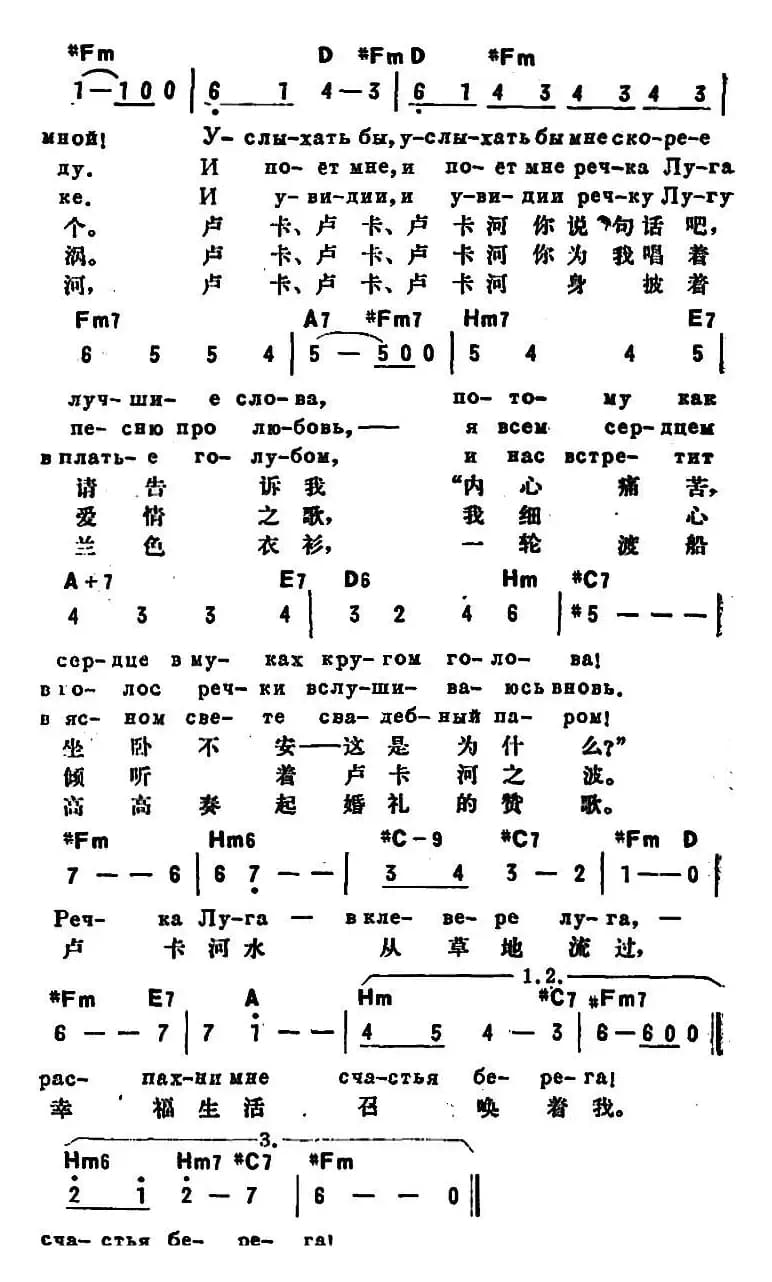 #Fm D #FmD #Fm
1—1 0 0 | 6 1 4—3 | 6 1 4 3 4 3 4 3 |
мной! У-слы-хать бы, у-слы-хать бы мне ско-ре-е
ду. И по-ёт мне, и по-ёт мне реч-ка Лу-га
ке. И у-ви-дии, и у-ви-дии реч-ку Лу-гу
个。 卢 卡、卢 卡、卢 卡 河 你 说 句 话 吧,
涡。 卢 卡、卢 卡、卢 卡 河 你 为 我 唱 着
河, 卢 卡、卢 卡、卢 卡 河 身 披 着
Fm7 A7 #Fm7 Hm7 E7
6 5 5 4 | 5 — 5 0 0 | 5 4 4 5 |
луч-ши-е сло-ва, по-то-му как
пе-сню про лю-бовь,— я всем сер-дцем
в плать-е го-лу-бом, и нас встре-тит
请 告 诉 我 “内 心 痛 苦,
爱 情 之 歌, 我 细 心
兰 色 衣 衫, 一 轮 渡 船
A+7 E7 D6 Hm #C7
4 3 3 4 | 3 2 4 6 | #5 — — — |
сер-дце в му-ках кру-гом го-ло-ва!
в го-лос реч-ки вслу-ши-ва-юсь вновь.
в яс-ном све-те сва-деб-ный па-ром!
坐 卧 不 安——这 是 为 什 么?”
倾 听 着 卢 卡 河 之 波。
高 高 奏 起 婚 礼 的 赞 歌。
#Fm Hm6 #C-9 #C7 #Fm D
7 — — 6 | 6 7 — — | 3 4 3 — 2 | 1 — — 0 |
Реч-ка Лу-га — в кле-ве-ре лу-га, —
卢 卡 河 水 从 草 地 流 过,
1.2.
#Fm E7 A Hm #C7 #Fm7
6 — — 7 | 7 1 — — | 4 5 4 — 3 | 6 — 6 0 0 ‖
рас-пах-ни мне сча-стья бе-ре-га!
幸 福 生 活 召 唤 着 我。
3.
Hm6 Hm7 #C7 #Fm
2 1 2 — 7 | 6 — — 0 ‖
сча-стья бе-ре-га!